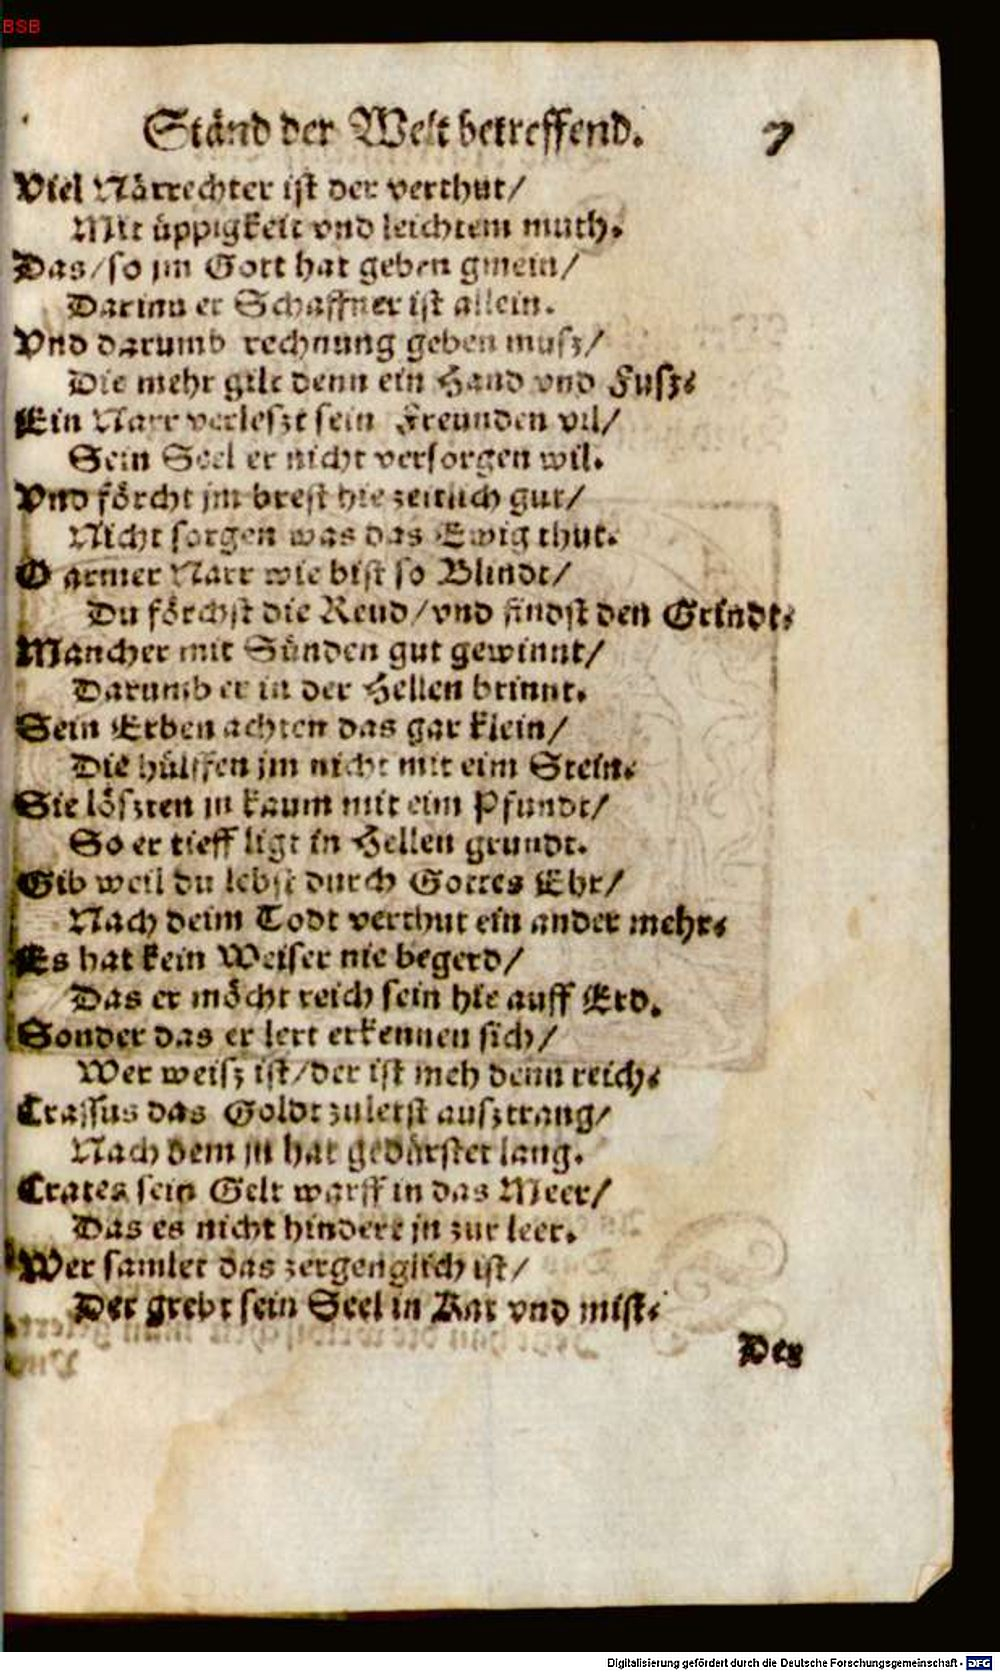 BSB
Ständ der Welt betreffend. 7
Viel Närrechter ist der verthut/
Mit üppigkeit vnd leichtem muth.
Das/so jm Gott hat geben gmein/
Darinn er Schaffner ist allein.
Vnd darumb rechnung geben musz/
Die mehr gilt denn ein Hand vnd Fusz.
Ein Narr verleszt sein Freunden vil/
Sein Seel er nicht versorgen wil.
Vnd förcht jm brest hie zeitlich gut/
Nicht sorgen was das Ewig thut.
O armer Narr wie bist so Blindt/
Du förchst die Reud/vnd findst den Grindt.
Mancher mit Sünden gut gewinnt/
Darumb er in der Hellen brinnt.
Sein Erben achten das gar klein/
Die hülffen jm nicht mit eim Stein.
Sie löszten jn kaum mit eim Pfundt/
So er tieff ligt in Hellen grundt.
Gib weil du lebst durch Gottes Ehr/
Nach deim Todt verthut ein ander mehr.
Es hat kein Weiser nie begerd/
Das er möcht reich sein hie auff Erd.
Sonder das er lert erkennen sich/
Wer weisz ist/der ist meh denn reich.
Crassus das Goldt zuletst ausztrang/
Nach dem jn hat gedürstet lang.
Crates sein Gelt warff in das Meer/
Das es nicht hindert jn zur leer.
Wer samlet das zergenglich ist/
Der grebt sein Seel in Kat vnd mist.
Der
Digitalisierung gefördert durch die Deutsche Forschungsgemeinschaft - DFG